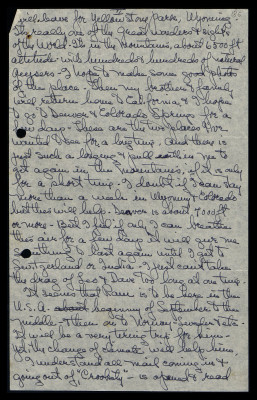 will leave for Yellowstone Park, Wyoming
Its really one of the great wonders & sights
of the World. Its in the mountains, about 6500 ft
altitude with hundreds & hundreds of natural
Geysers - I hope to make some good photos
of this place. Then my brother & family
will return home to California & I hope
to go to Denver & Colorado Springs for a
few days - These are the two places I've
wanted to see for a long time. And there is
just such a longing & pull in me to
get again in the mountains, if it is only
for a short time. I doubt if I can stay
more than a week in Wyoming & Colorado
but this will help. Denver is about 7000 ft
or more - But I feel if only I can breathe
this air for a few days it will give me
something to last again until I get to
Switzerland or India - I just can't take
the drag of too long at one time.
It seems that Dave is to be here in the
U.S.A. about beginning of September to the
middle - & then on to Norway - Sweden & etc -
It will be a very tiring trip for him -
but the change of climate will help him.
I understand all - mail coming in &
going out of "Crosby" - is opened & read